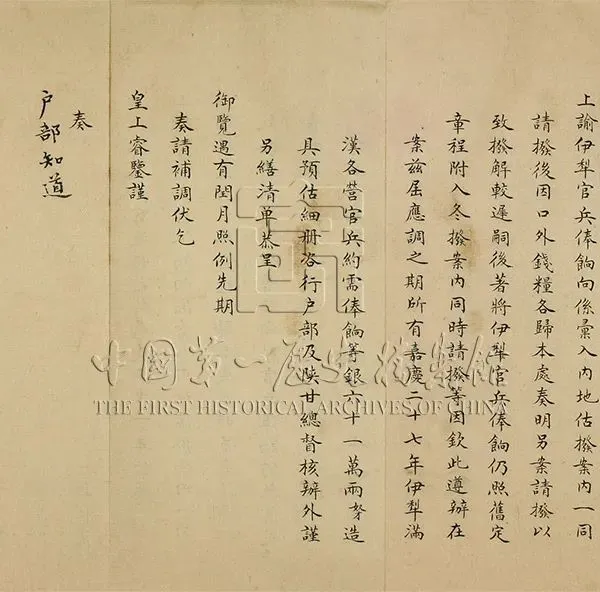 上諭伊犁官兵俸餉向係彙入內地估撥案內一同
請撥後因口外錢糧各歸本處奏明另案請撥以
致撥解較遲嗣後著將伊犁官兵俸餉仍照舊定
章程附入冬撥案內同時請撥等因欽此遵辦在
案茲屆應調之期所有嘉慶二十七年伊犁滿
漢各營官兵約需俸餉等銀六十一萬兩造
具預估細冊咨行户部及陝甘總督核辦外謹
另繕清單恭呈
御覽遇有閏月照例先期
奏請補調伏乞
皇上睿鑒謹
奏
户部知道
中國第一歷史檔案館
THE FIRST HISTORICAL ARCHIVES OF CHINA